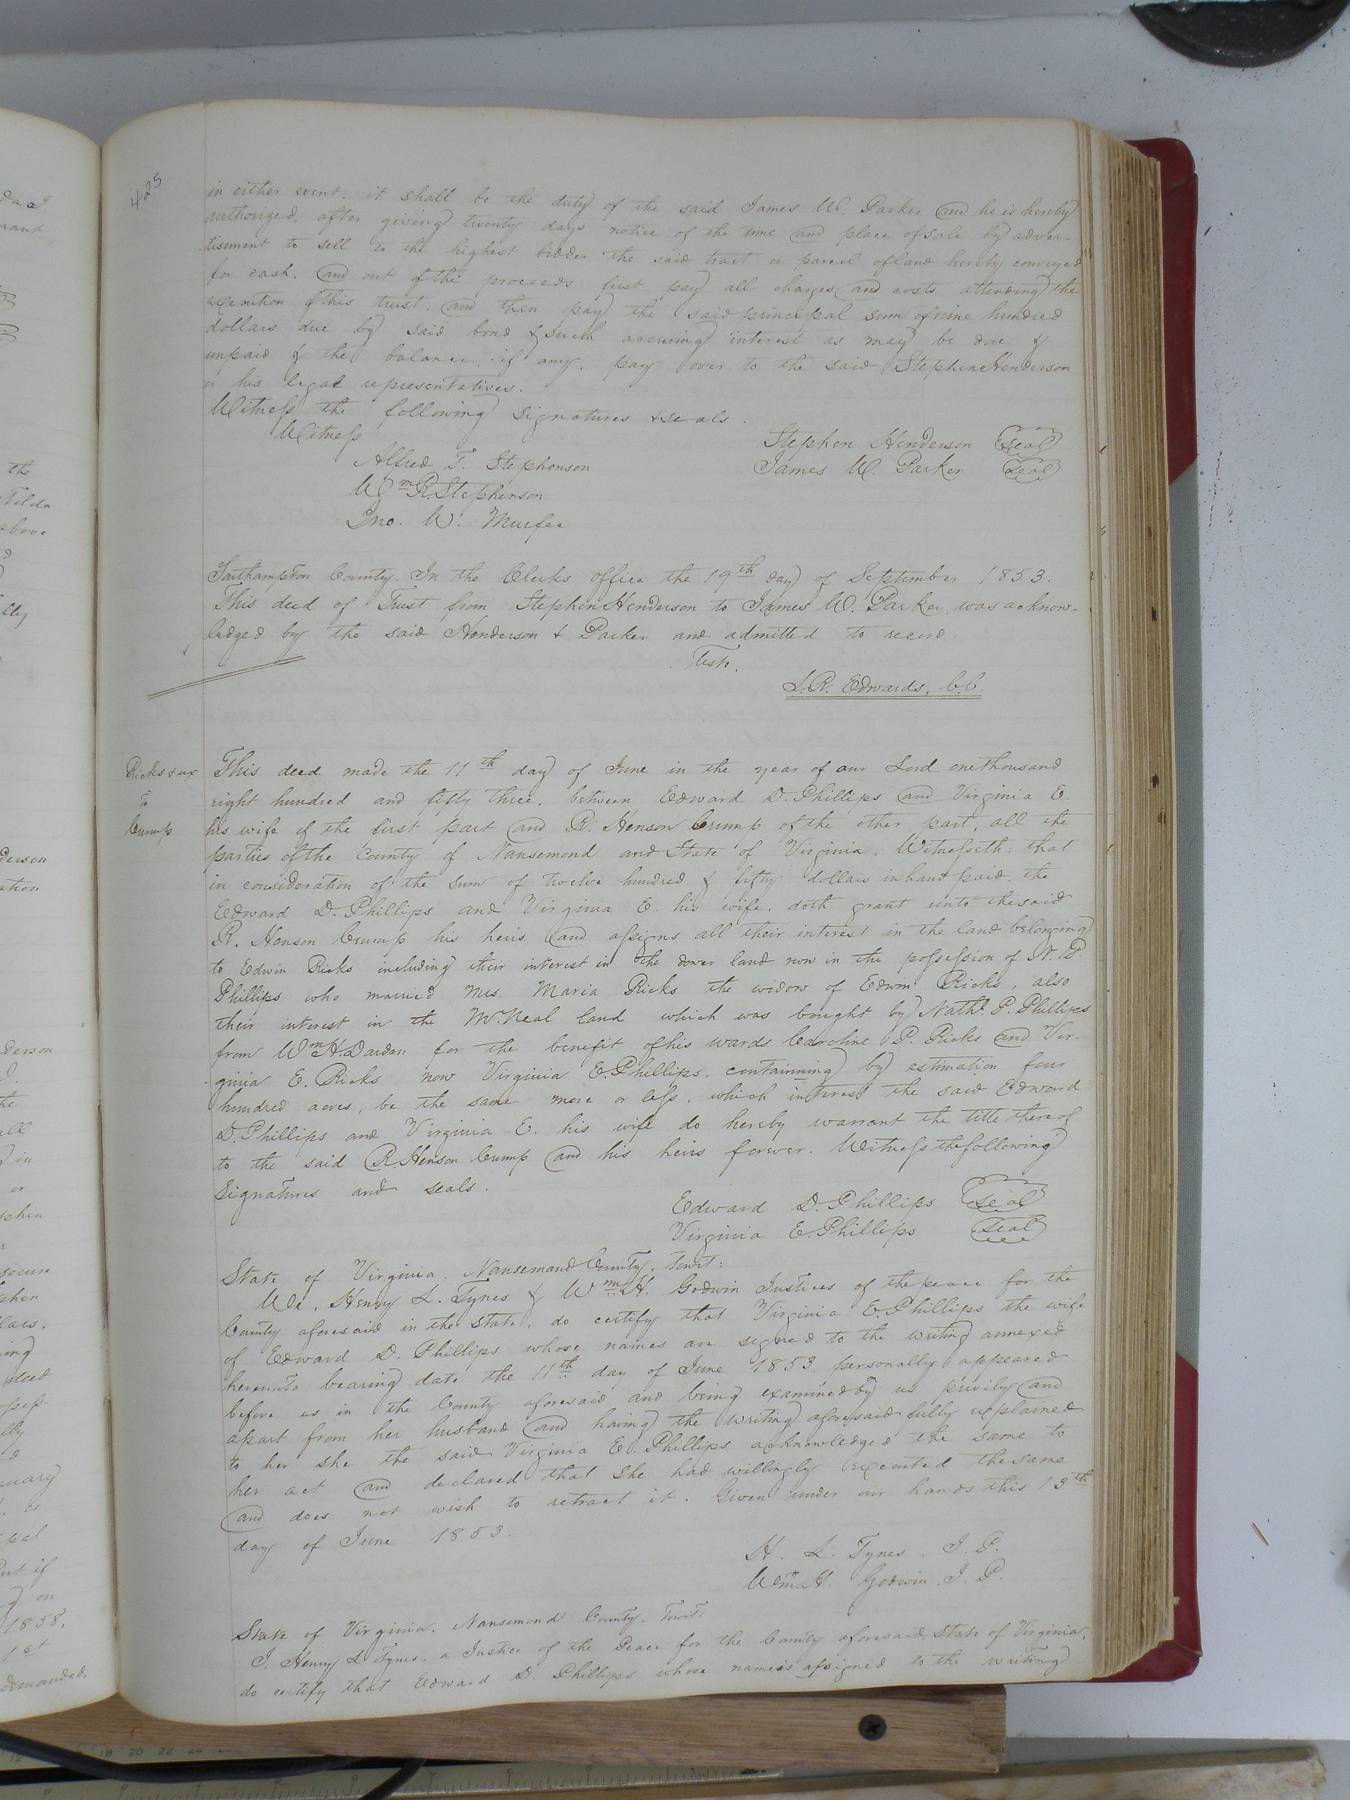 425
in either event, it shall be the duty of the said James W. Parker and he is hereby
authorized, after giving twenty days notice of the time and place of sale by adver-
tisement to sell to the highest bidder the said tract or parcel of land hereby conveyed
for cash, and out of the proceeds first pay all charges and costs attending the
execution of this trust, and then pay the said principal sum of nine hundred
dollars due by said bond & such accruing interest as may be due &
unpaid & the balance, if any, pay over to the said Stephen Henderson
or his legal representatives.
Witness the following signatures & seals.
Witness
Stephen Henderson Seal
Alfred T. Stephenson
James W. Parker Seal
Wm R. Stephenson
Jno. W. Murfee
Southampton County. In the Clerks office the 19th day of September 1853.
This deed of Trust from Stephen Henderson to James W. Parker, was acknow-
ledged by the said Henderson & Parker and admitted to record.
Teste.
L. R. Edwards, C.C.
Ricks & ux
To
Crump
This deed made the 11th day of June in the year of our Lord one thousand
eight hundred and fifty three, between Edward D. Phillips and Virginia E.
his wife of the first part and R. Henson Crump of the other part, all the
parties of the County of Nansemond and State of Virginia. Witnesseth: that
in consideration of the sum of twelve hundred & fifty dollars in hand paid, the
Edward D. Phillips and Virginia E. his wife, doth grant unto the said
R. Henson Crump his heirs and assigns all their interest in the land belonging
to Edwin Ricks including their interest in the dower land now in the possession of N. P.
Phillips who married Mrs. Maria Ricks the widow of Edwin Ricks, also
their interest in the McNeal land which was bought by Nathl. P. Phillips
from Wm H. Darden for the benefit of his wards Caroline P. Ricks and Vir-
ginia E. Ricks now Virginia E. Phillips, containing by estimation four
hundred acres, be the same more or less, which interest the said Edward
D. Phillips and Virginia E. his wife do hereby warrant the title thereof
to the said R. Henson Crump and his heirs forever. Witness the following
signatures and seals.
Edward D. Phillips Seal
Virginia E. Phillips Seal
State of Virginia, Nansemond County, towit:
We, Henry L. Tynes & Wm. H. Godwin Justices of the peace for the
County aforesaid in the State, do certify that Virginia E. Phillips the wife
of Edward D. Phillips whose names are signed to the writing annexed
hereunto bearing date the 11th day of June 1853, personally appeared
before us in the County aforesaid and being examined by us privily and
apart from her husband and having the writing aforesaid fully explained
to her she the said Virginia E. Phillips acknowledged the same to
her act and declared that she had willingly executed the same
and does not wish to retract it. Given under our hands this 13th
day of June 1853.
H. L. Tynes. J. P.
Wm. H. Godwin J. P.
State of Virginia. Nansemond County. Towit:
I, Henry L. Tynes, a Justice of the Peace for the County aforesaid, State of Virginia,
do certify that Edward D. Phillips whose name is assigned to the writing